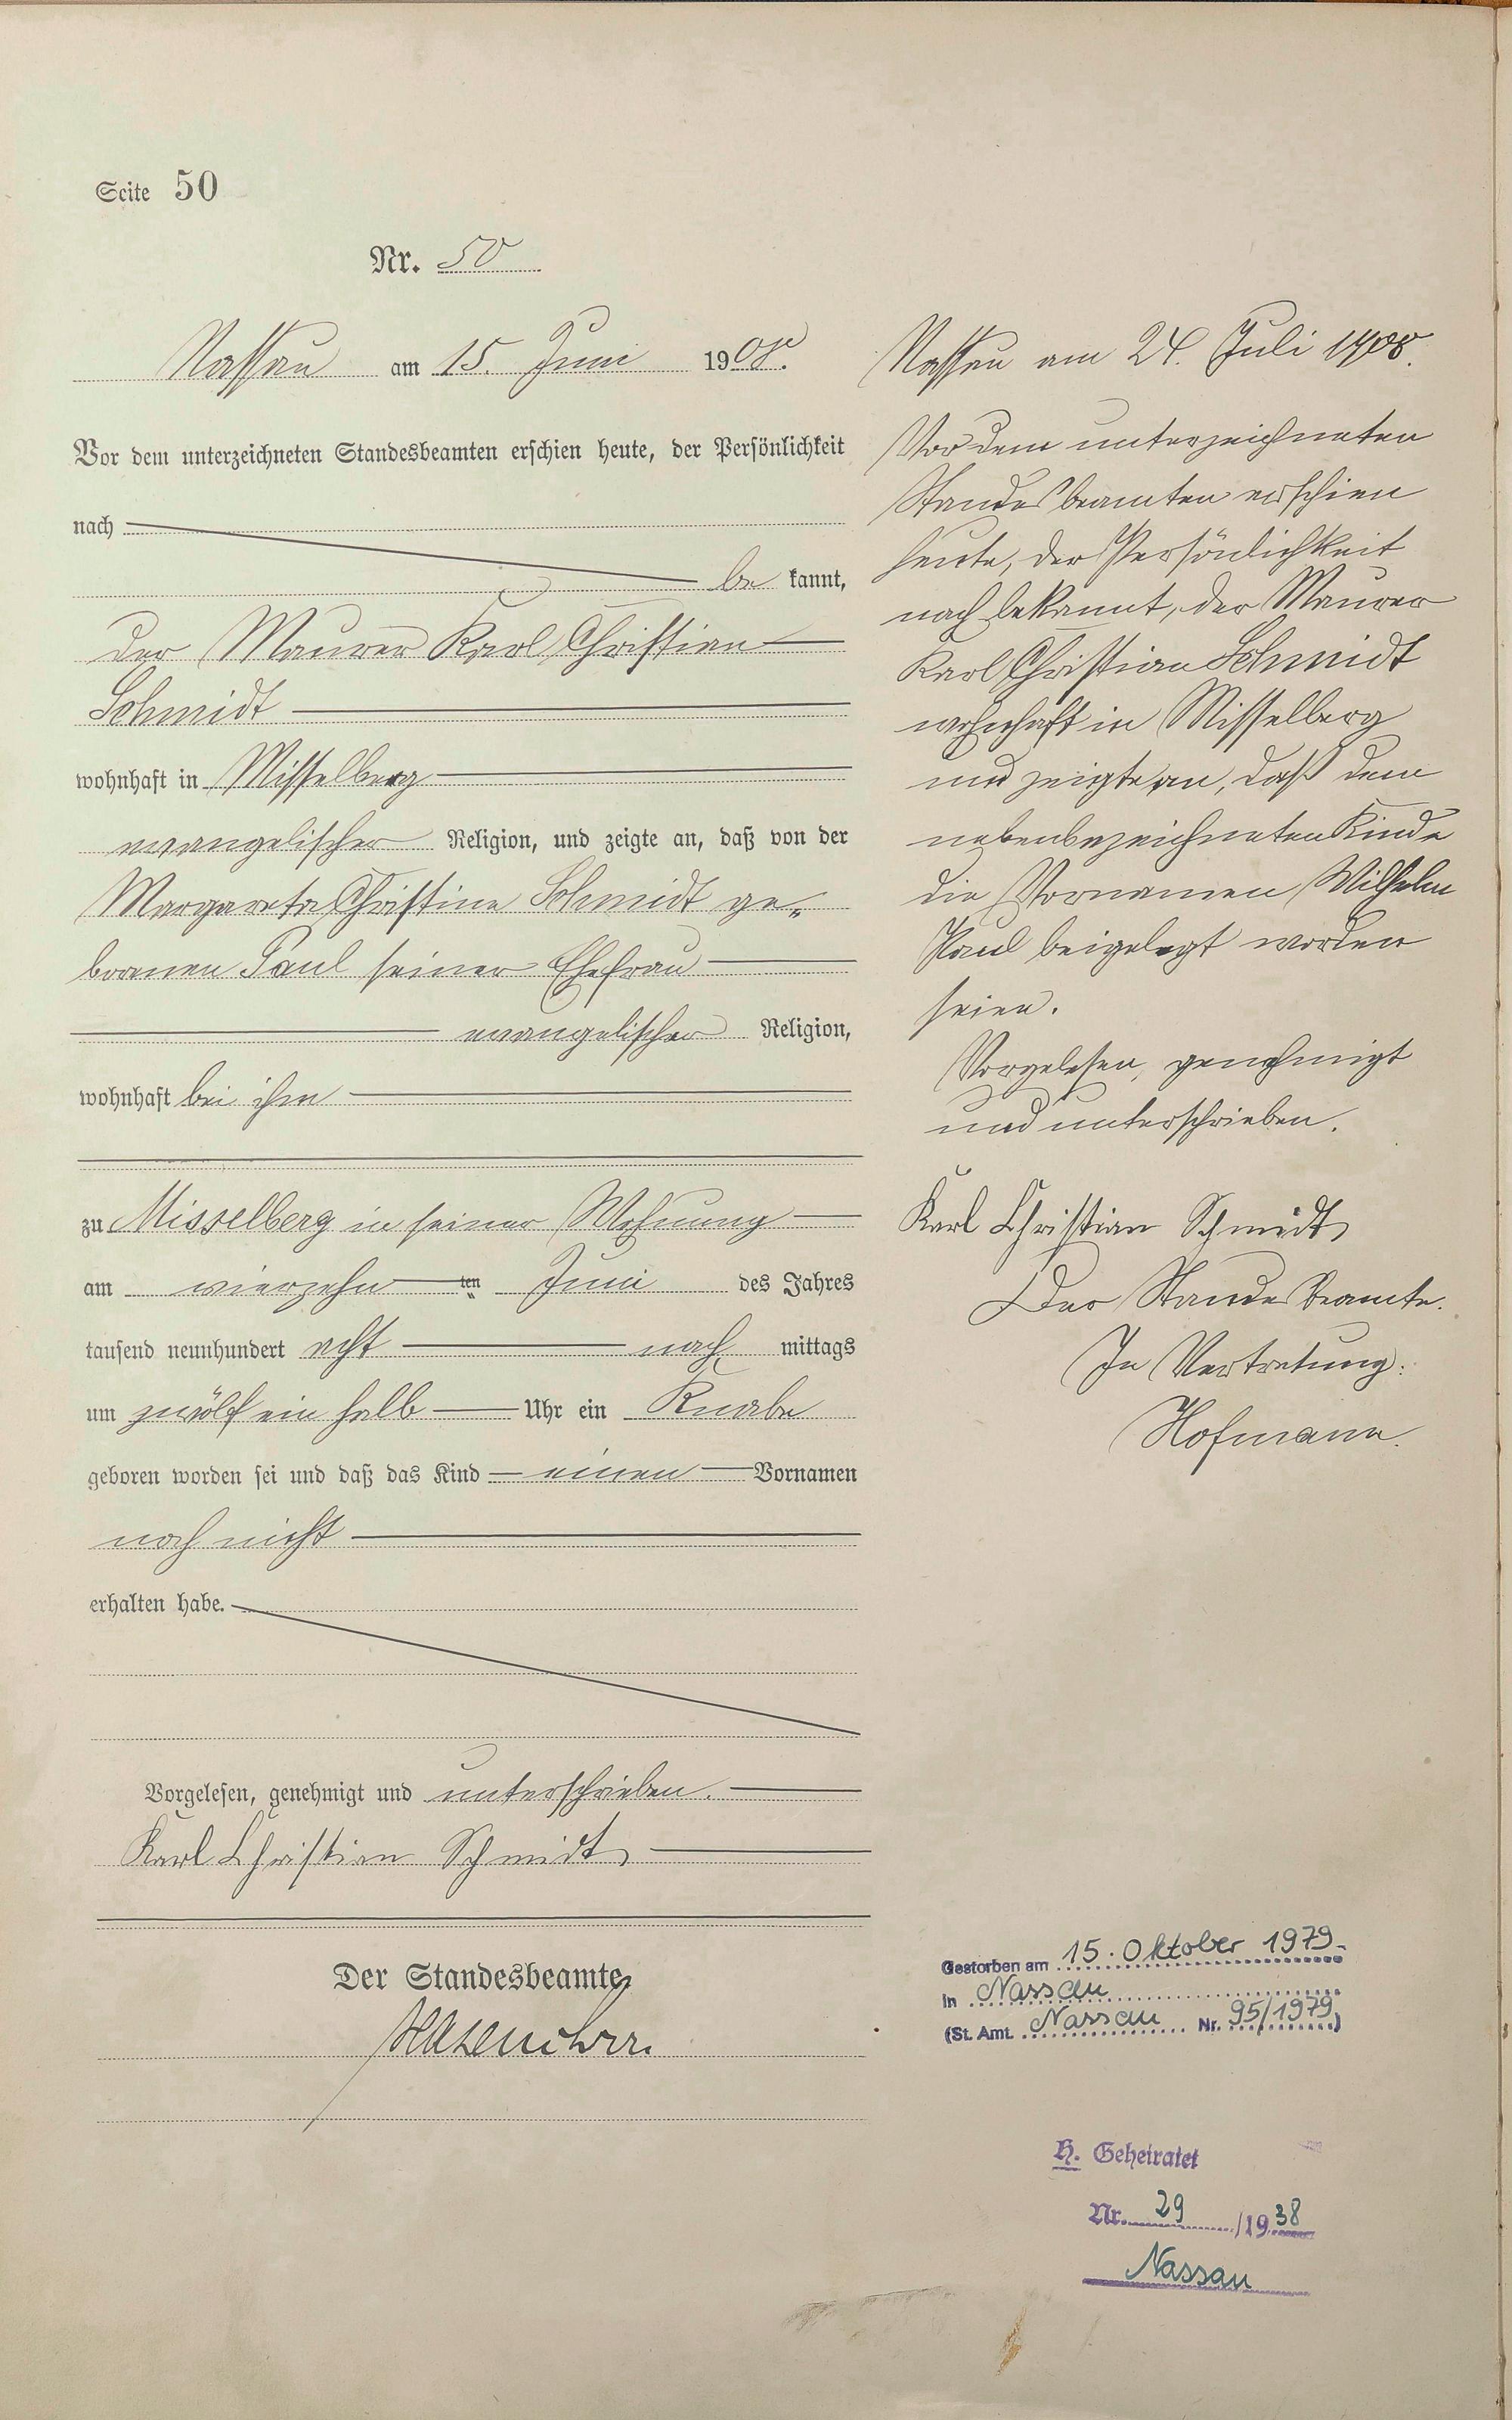 Seite 50
Nr. 50
Nassau am 15. Juni 1908.
Vor dem unterzeichneten Standesbeamten erschien heute, der Persönlichkeit
nach
be kannt,
der Maurer Karl Christian
Schmidt
wohnhaft in Misselberg
evangelischer Religion, und zeigte an, daß von der
Margareta Christine Schmidt ge-
borenen Paul seiner Ehefrau
evangelischer Religion,
wohnhaft bei ihm
zu Misselberg in seiner Wohnung
am vierzehn ten Juni des Jahres
tausend neunhundert acht nach mittags
um zwölf ein halb Uhr ein Knabe
geboren worden sei und daß das Kind einen Vornamen
noch nicht
erhalten habe.
Vorgelesen, genehmigt und unterschrieben.
Karl Christian Schmidt
Der Standesbeamte
Nassau am 24. Juli 1908.
Vor dem unterzeichneten
Standesbeamten erschien
heute, der Persönlichkeit
nach bekannt, der Maurer
Karl Christian Schmidt
wohnhaft in Misselberg
und zeigte an, daß dem
nebenbezeichneten Kinde
die Vornamen Wilhelm
Paul beigelegt worden
seien.
Vorgelesen, genehmigt
und unterschrieben.
Karl Christian Schmidt
Der Standesbeamte.
In Vertretung:
Hofmann.
Gestorben am 15. Oktober 1979
in Nassau
(St. Amt Nassau Nr. 95/1979)
H. Geheiratet
Nr. 29 /1938
Nassau